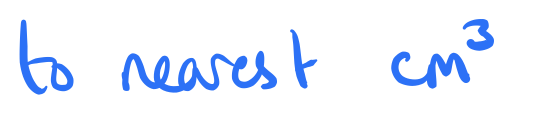 to nearest cm³